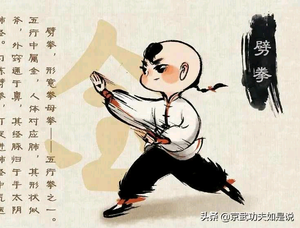 劈拳
金
劈拳，形意拳母拳——五行拳之一。
五行中属金，人体对应肺，其形状似
斧，外窍通于鼻，其经脉归于手太阴
头条 @京武功夫如是说